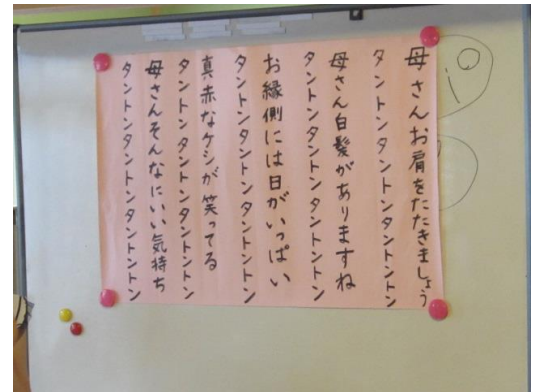 母さんお肩をたたきましょう
タントンタントンタントントン
母さん白髪がありますね
タントンタントンタントントン
お縁側には日がいっぱい
タントンタントンタントントン
真赤なケシが笑ってる
タントンタントンタントントン
母さんそんなにいい気持ち
タントンタントンタントントン